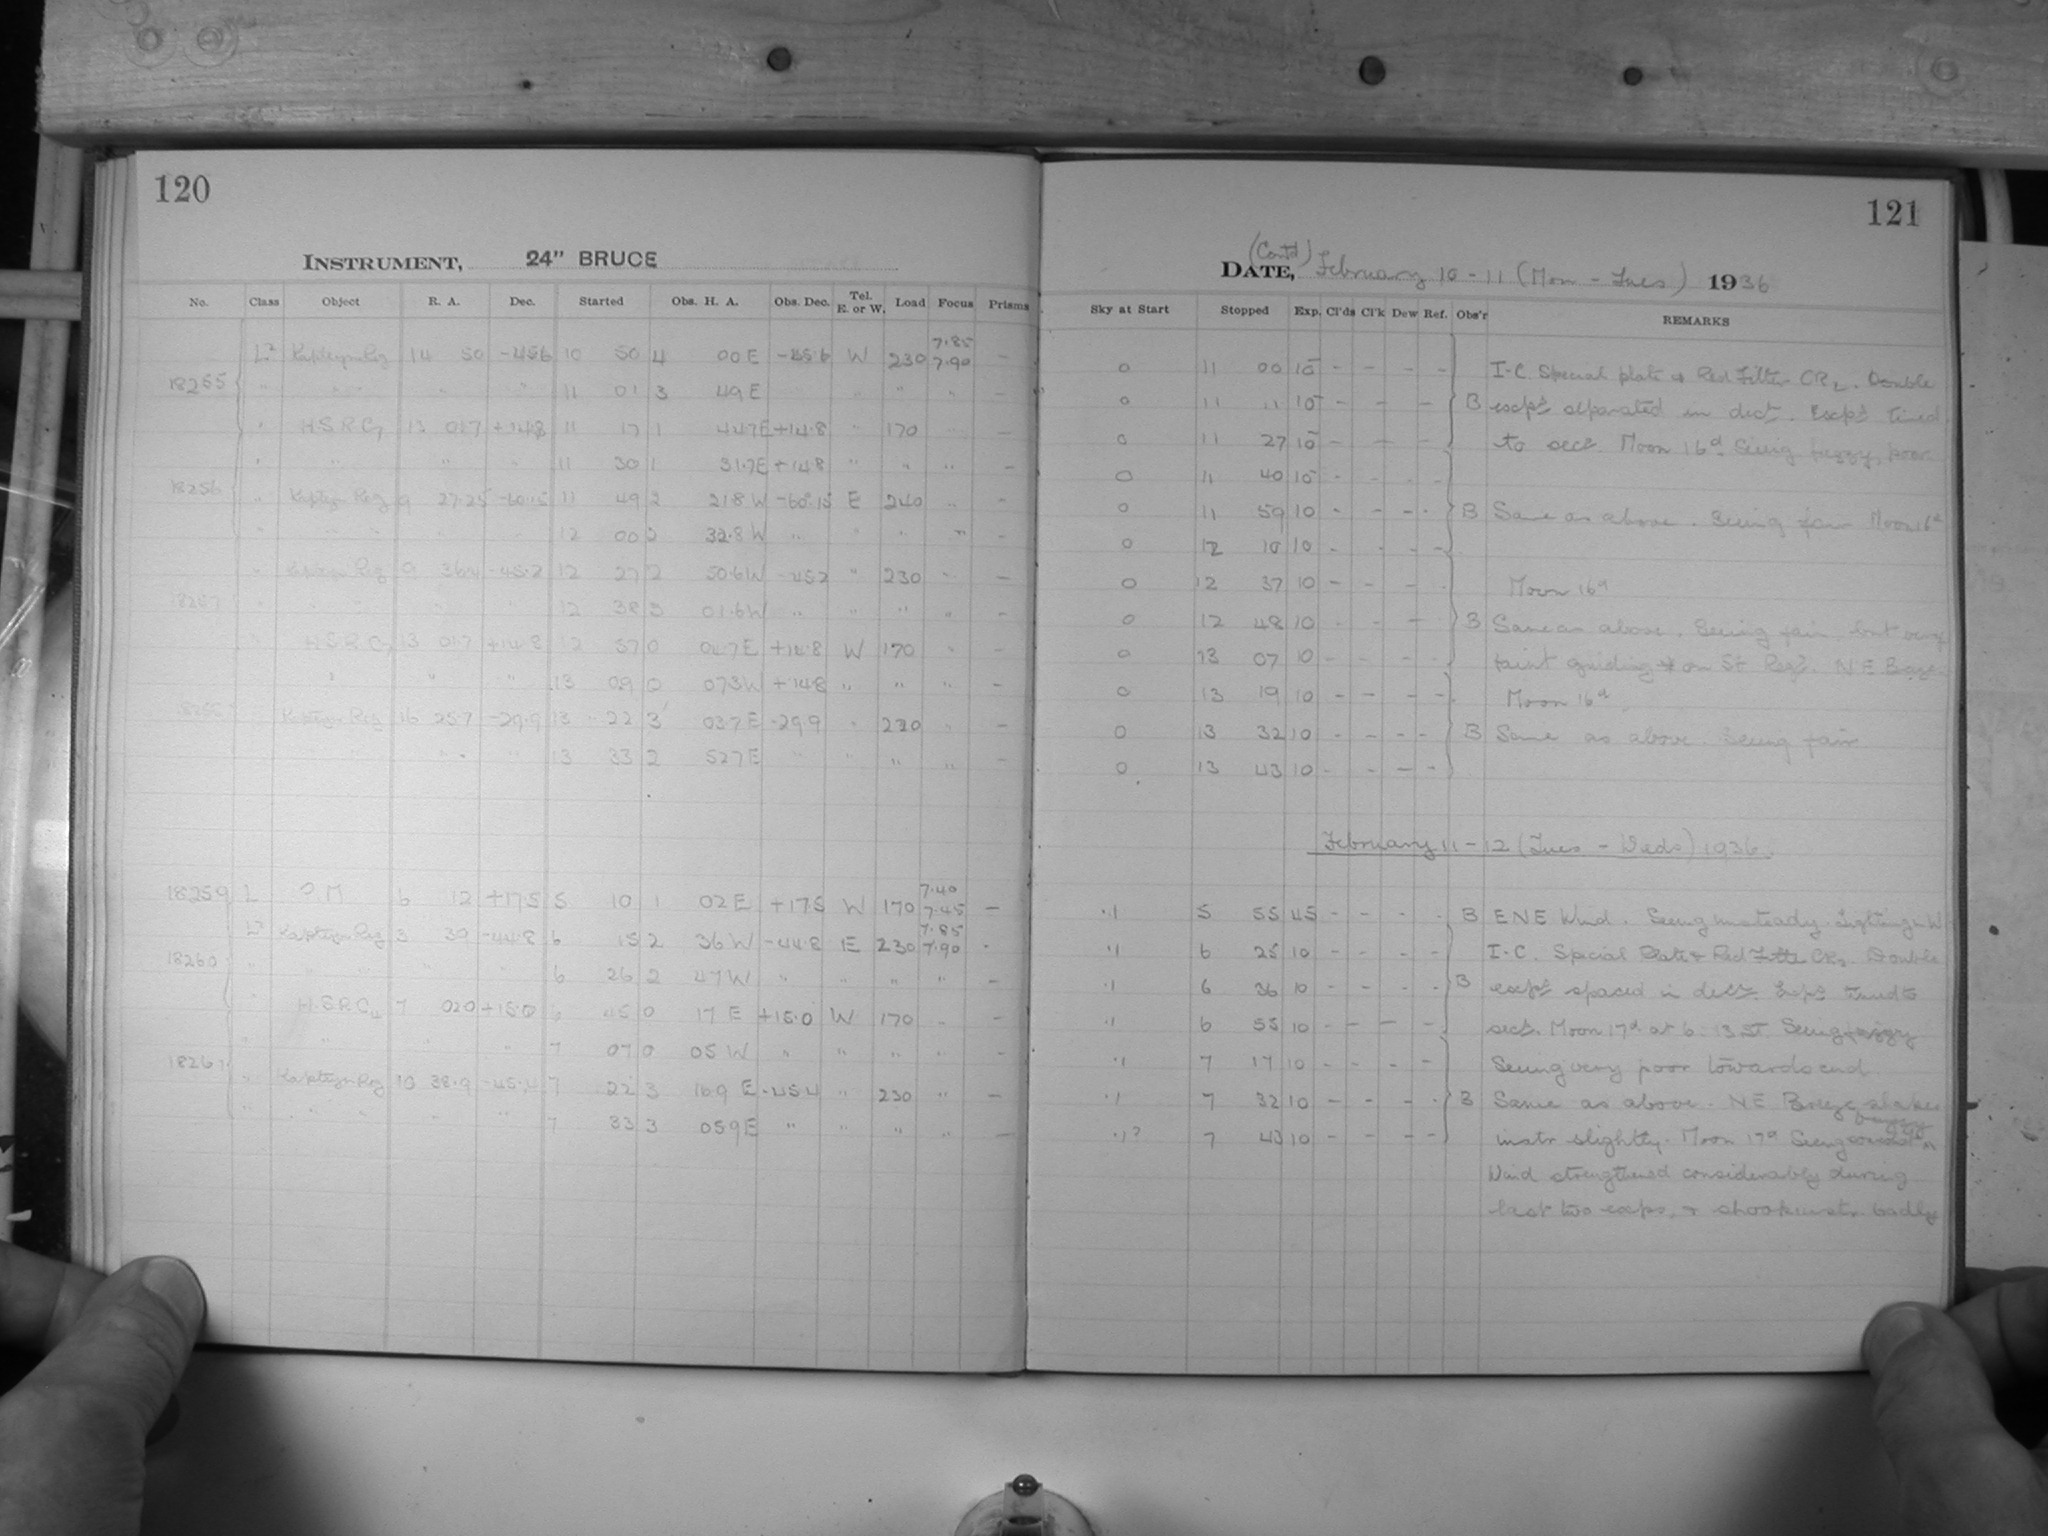 120
INSTRUMENT, 24" BRUCE
No. Class Object R. A. Dec. Started Obs. H. A. Obs. Dec. Tel. E. or W. Load Focus Prisms
L² Kapteyn Reg 14 50 -45.6 10 50 4 00 E -45.6 W 230 7.85 7.90 -
18255 " " " " " 11 01 3 49 E " " " -
" H.S.R.C7 13 01.7 +14.8 11 17 1 44.7 E +14.8 " 170 " -
" " " " 11 30 1 31.7 E +14.8 " " " -
18256 " Kapteyn Reg 9 27.25 -60.15 11 49 2 21.8 W -60.15 E 240 " -
" " " 12 00 2 32.8 W " " " " -
" Kapteyn Reg 9 36.4 -45.2 12 27 2 50.6 W -45.2 " 230 " -
18257 " " " " " 12 38 3 01.6 W " " " " -
" H.S.R.C7 13 01.7 +14.8 12 57 0 04.7 E +14.8 W 170 " -
" " " 13 09 0 07.3 W +14.8 " " " -
18258 Kapteyn Reg 16 25.7 -29.9 13 22 3 03.7 E -29.9 " 220 " -
" " 13 33 2 52.7 E " " " " -
18259 L O.M 6 12 +17.5 5 10 1 02 E +17.5 W 170 7.40 7.45 -
L² Kapteyn Reg 3 39 -44.8 6 15 2 36 W -44.8 E 230 7.85 7.90 -
18260 " " " " " 6 26 2 47 W " " " " -
" H.S.R.C4 7 02.0 +15.0 6 45 0 17 E +15.0 W 170 " -
" " " " 7 07 0 05 W " " " " -
18261 " Kapteyn Reg 10 38.9 -45.4 7 22 3 16.9 E -45.4 " 230 " -
" " " " " 7 33 3 05.9 E " " " " -
121
(Cont'd)
DATE, February 10 - 11 (Mon - Tues) 1936
Sky at Start Stopped Exp. Cl'ds Cl'k Dew Ref. Obs'r REMARKS
0 11 00 10 - - - - I-C. Special plate & Red Filter CR2. Double
0 11 11 10 - - - B exps separated in dect. Exps timed
0 11 27 10 - - - to sect. Moon 16d Seeing fuzzy, poor
0 11 40 10 - - - -
0 11 59 10 - - - - B Same as above. Seeing fair Moon 16d
0 12 10 10 - - - -
0 12 37 10 - - - - Moon 16d
0 12 48 10 - - - B Same as above. Seeing fair, but very
0 13 07 10 - - - - faint guiding * on St Reg. NE Breeze.
0 13 19 10 - - - - Moon 16d.
0 13 32 10 - - - - B Same as above. Seeing fair
0 13 43 10 - - - -
February 11 - 12 (Tues - Weds) 1936.
.1 5 55 45 - - - - B ENE Wind. Seeing unsteady. Lightning W
.1 6 25 10 - - - - I-C. Special Plate & Red Filter CR2 Double
.1 6 36 10 - - - - B exps spaced in dect. Exps timed to
.1 6 55 10 - - - - sect. Moon 17d at 6:13 ST Seeing fuzzy
.1 7 17 10 - - - - Seeing very poor towards end
.1 7 32 10 - - - - B Same as above. NE Breeze shakes
.1? 7 43 10 - - - - instr slightly. Moon 17d Seeing fuzzy
Wind strengthened considerably during
last two exps, & shook instr. badly